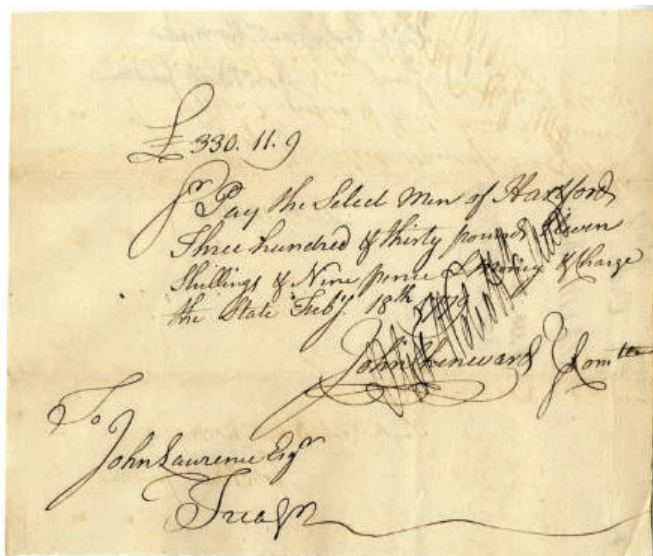 £ 330. 11. 9
Sr Pay the Select Men of Hartford
Three hundred & thirty pounds Eleven
Shillings & Nine pence Money & Charge
the State Feby. 18th 1779
John Chenevard Comtee
To
John Lawrence Esqr
Treasr